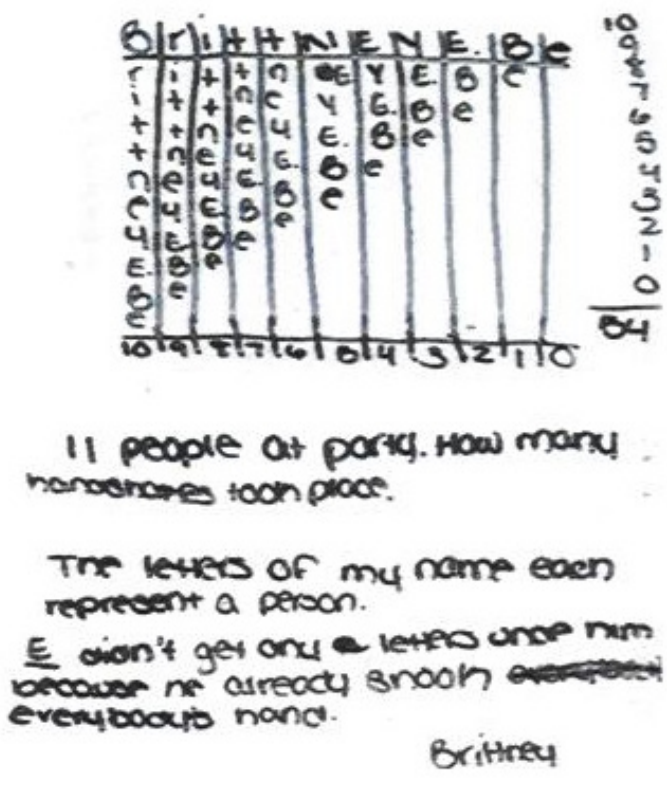 B r i t t N E Y E. B e
r i t t n E Y E B e
i t t n e Y E. B e
t t n e y E. B e
t n e y E. B e
n e y E. B e
e y E B e
y E B e
E. B e
B e
e
10 9 8 7 6 5 4 3 2 1 0
10
9
8
7
6
5
4
3
2
1
0
54
11 people at party. How many
handshakes took place.
The letters of my name each
represent a person.
E didn't get any letters under him
because he already shook
everybody's hand.
Brittney